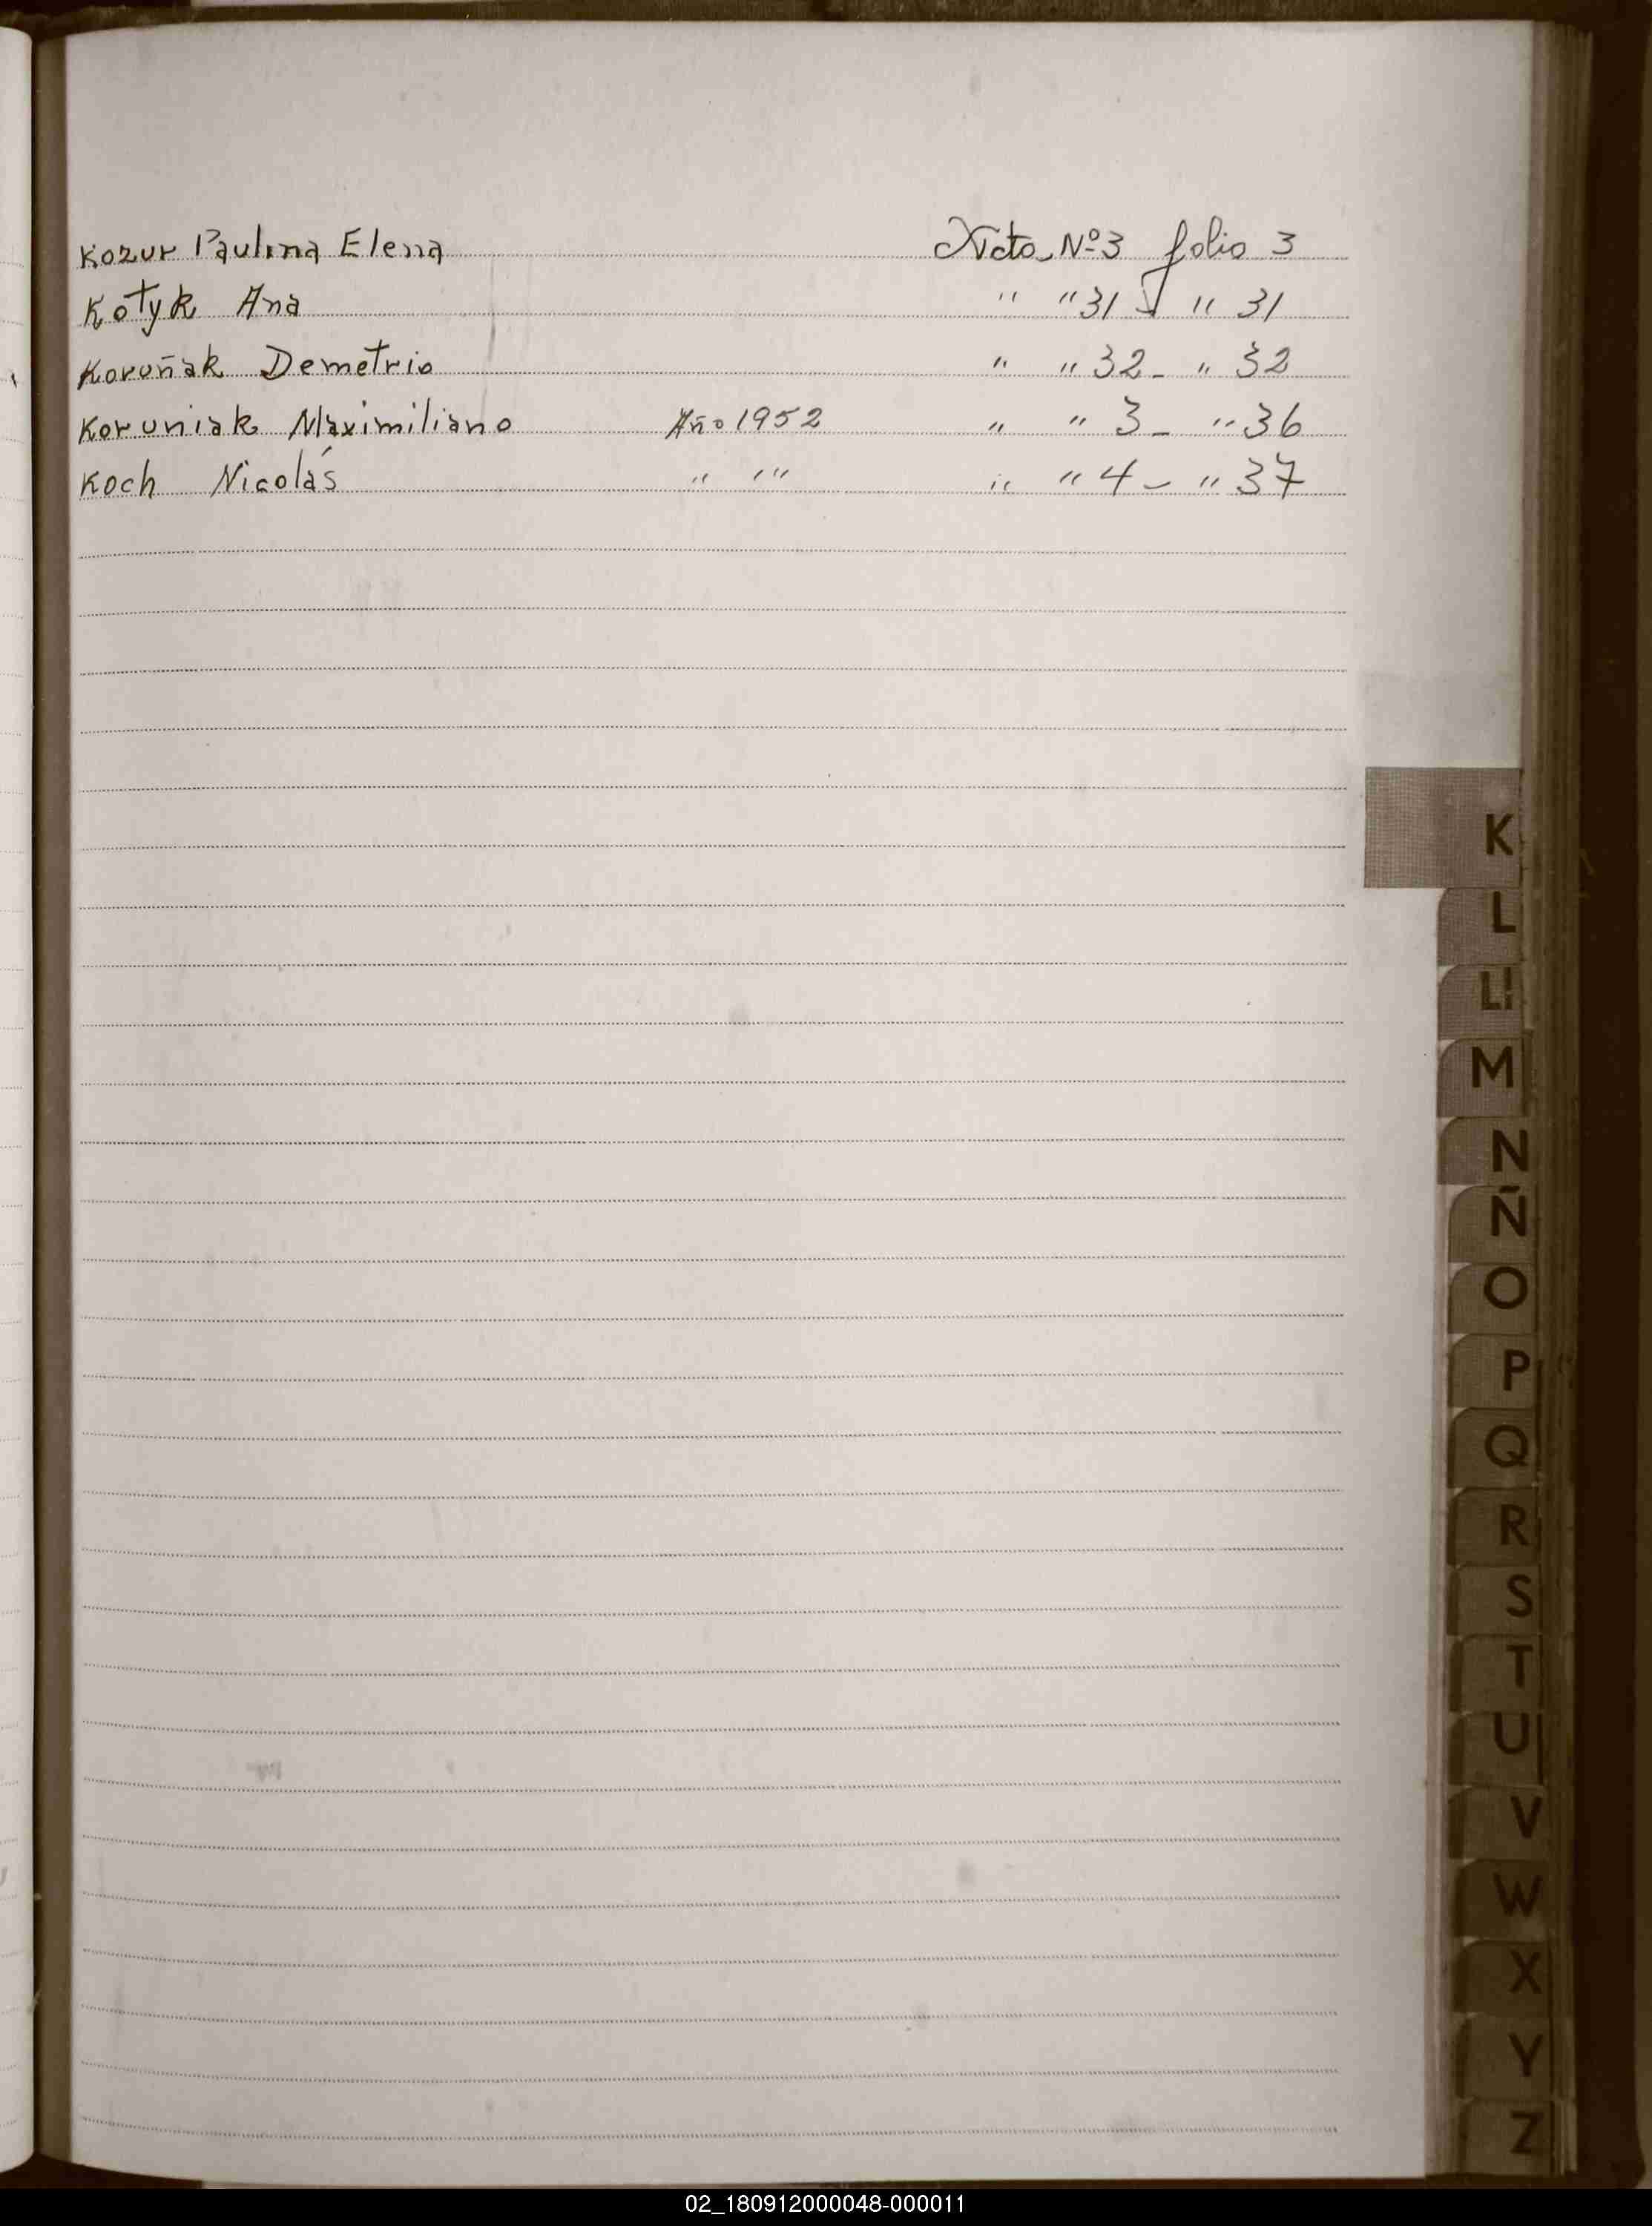 Kozur Paulina Elena Acta Nº 3 folio 3
Kotyk Ana " " 31 " 31
Koruñak Demetrio " " 32 - " 32
Koruniak Maximiliano Año 1952 " " 3 - " 36
Koch Nicolás " " " " 4 - " 37
K
L
Ll
M
N
Ñ
O
P
Q
R
S
T
U
V
W
X
Y
Z
02_180912000048-000011